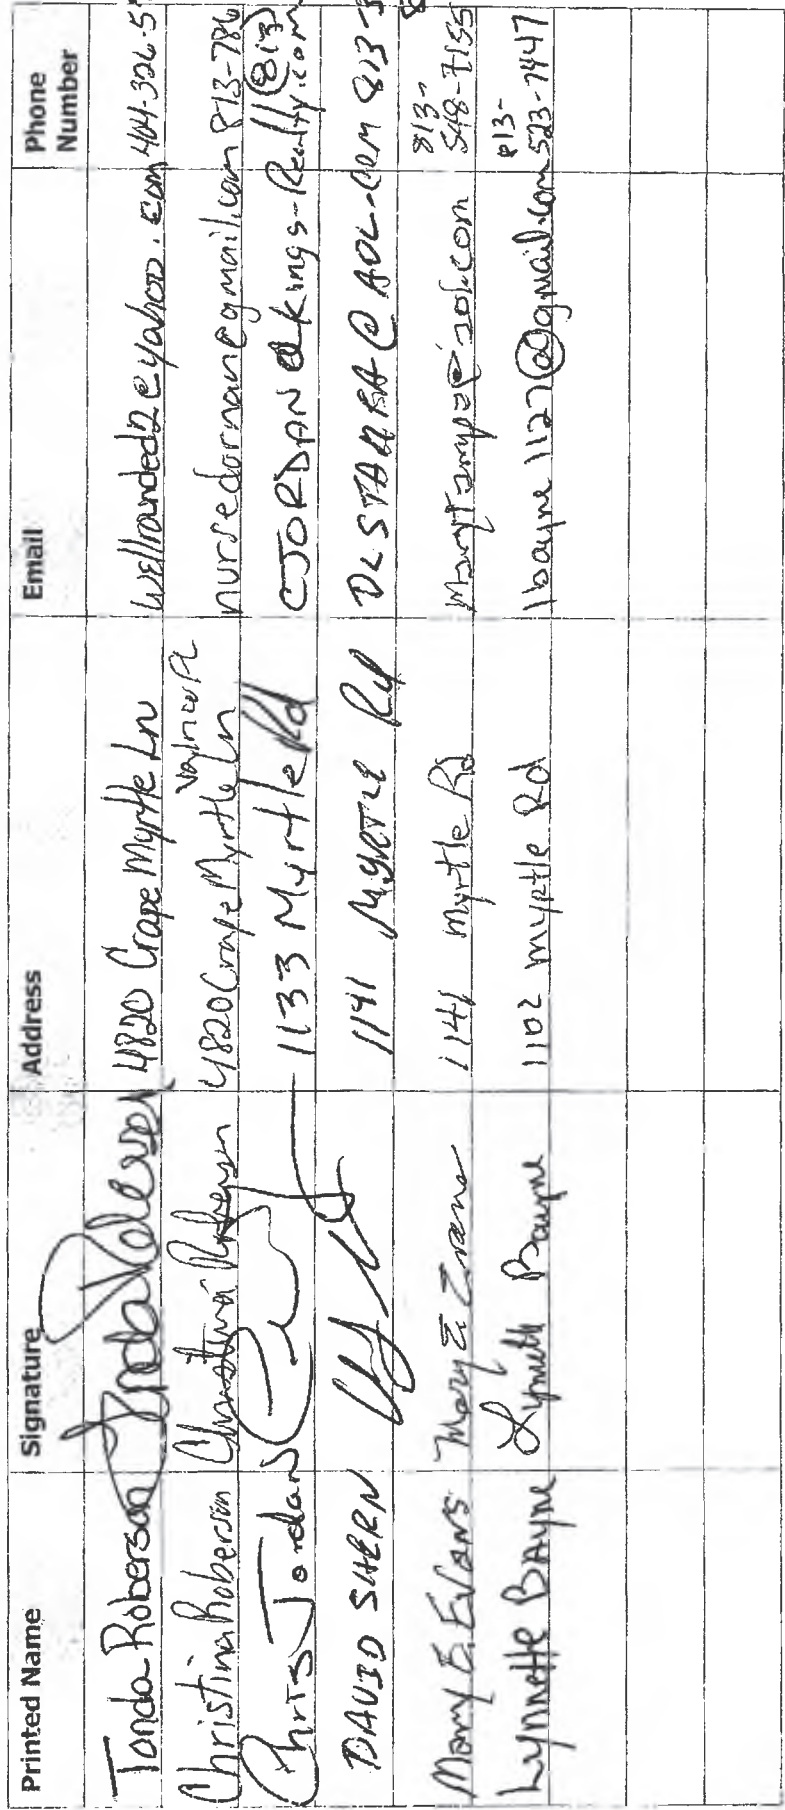 Printed Name Signature Address Email Phone Number
Tonda Roberson 4820 Crape Myrtle Ln wellrounded2@yahoo.com 404-326-5
Christina Roberson Christina Roberson 4820 Crape Myrtle Ln Valrico FL nursedornan@gmail.com 813-786
Chris Jordan 1133 Myrtle Rd CJORDAN@kings-Realty.com (813)
DAVID SHERN 1141 Myrtle Rd @AOL.COM 813-3
Mary E. Evans Mary E Evans 1141 Myrtle Rd marytampa@aol.com 813-548-7155
Lynnette Bayne Lynnette Bayne 1102 Myrtle Rd lbayne1127@gmail.com 813-523-7447